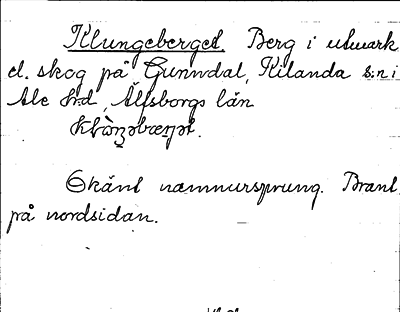 Klungeberget. Berg i utmark
el. skog på Gunndal, Kilanda s:n i
Ale Hrd, Älfsborgs län
Okänt namnursprung. Brant
på nordsidan.